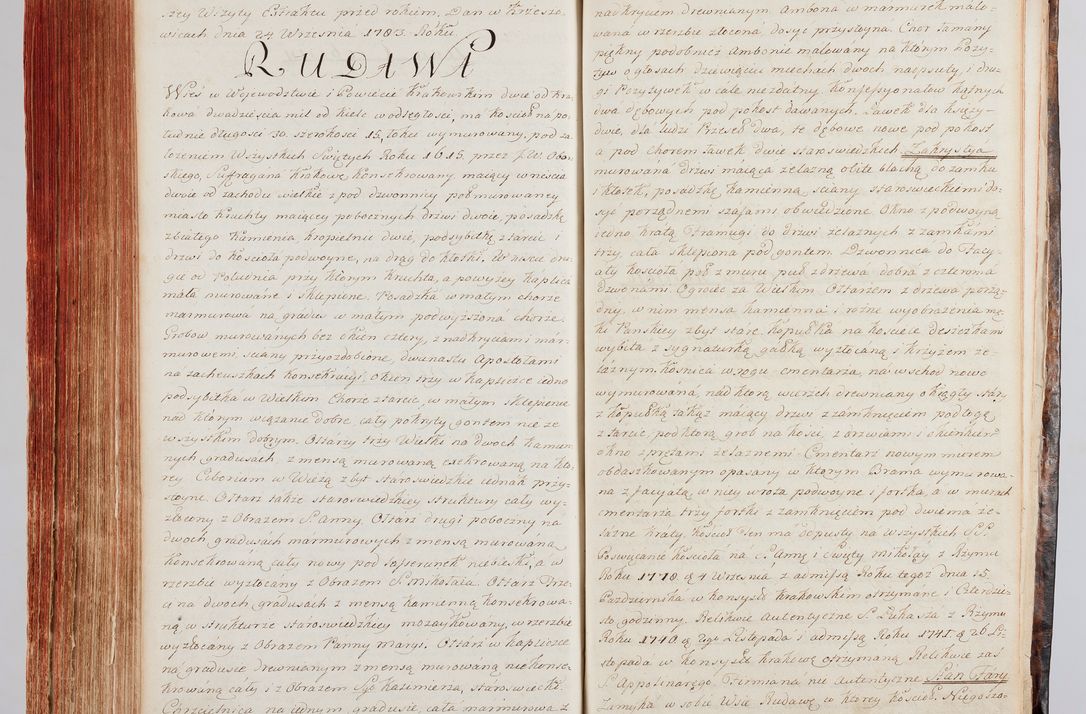 szey Wizyty Extraktu przed rokiem. Dan w Krzeszo-
wicach dnia 24 Wrzesnia 1783 Roku
RUDAWA
Wieś w Wojewodztwie i Powiecie Krakowskim dwie od Kra-
kowa dwadziescia mil od Kielc wodległości, ma kościoł na po-
łudnie długości 30. szerokości 15, łokci wymurowany, pod za-
łozeniem Wszystkich Swiętych Roku 1615, przez J.W. Obor-
skiego, Suffragana Krakow: Konsekrowany, maiący wniscia
dwoie od zachodu wielkie z pod dzwonnicy pobmurowaney
miasto kruchty maiącey pobocznych drzwi dwoie, posadzkę
z białego kamienia kropielnic dwie, podsybitkę z tarcic i
drzwi do kościoła podwoyne, na drąg do kłotki. Wniscie dru-
gie od Południa przy którym kruchta, a powyzey kaplica
mała murowane i sklepione. Posadzka w małym chorze
marmurowa na gradus w małym podwyzszona chorze.
Grobow murowanych bez okien cztery, z nadkryciami mar-
murowemi, sciany przyozdobione, dwunastu Apostołami
na zacheuszkach Konsekracyi, okien trzy w kapliczce iedno
podsybitka w Wielkim Chorze z tarcic, w małym sklepienie
nad którym wiązanie dobre, cały pokryty gontem nie ze
wszystkim dobrym. Ołtarzy trzy Wielki na dwoch kamien-
nych gradusach z mensą murowaną exekrowaną na któ-
rey Ciborium w Wiezą zbyt staroswiedzkie iednak przy-
stoyne. Ołtarz także staroswiedzkiey struktury cały wy-
złocony z Obrazem S. Anny, Ołtarz drugi poboczny na
dwoch gradusach marmurowych z mensą murowaną
Konsekrowaną cały nowy pod lasserunek niebieski, a w
rzezbie wyzłocany z Obrazem S. Mikołaia. Ołtarz Trze-
ci na dwoch gradusach z mensą kamienną Konsekrowa-
ną w strukturze staroswiedzkiey mozaykowany, w rzezbie
wyzłocany z Obrazem Panny Maryi. Ołtarz w kapliczce
na gradusie drewnianym z mensą murowaną nie Konse-
krowaną cały i z Obrazem Sgo Kazimierza, staroswiecki.
Chrzcielnica na iednym gradusie, cała marmurowa z
nadkryciem drewnianym Ambona w marmurek malo-
wana w rzezbie złocona, dosyć przystoyna. Chor łamany
piękny podobnież Ambonie malowany na którym Pozy-
tyw o głosach dziewięciu miechach dwoch nadpsuty, i dru-
gi Pozytywek w cale niezdatny. Konfessyonałow kątnych
dwa dębowych pod pokost dawanych. Ławek dla Księży
dwie, dla ludzi Krzeseł dwa, te dębowe nowe pod pokost
a pod chorem ławek dwie staroswiedzkich Zakrystya
murowana drzwi maiąca zelazną obite blachą do zamku
i kłotek, posadzkę kamienną, sciany staroswieckiemi do-
syć porządnemi szafami obwiedzione. Okno z podwoyną
iedno kratą Framugi do drzwi zelaznych z zamkami
trzy, cała sklepiona pod gontem. Dzwonnica do Facy-
aty kościoła puł z muru puł z drzewa dobra z czterma
dzwonami. Ogroiec za Wielkim Ołtarzem z drzewa porzą-
dny, w nim mensa kamienna i rozne wyobrazenia mę-
ki Pańskiey zbyt stare. Kopułka na kościele deszczkami
wybita z sygnaturką gałką wyzłocaną i krzyżem ze-
laznym. Kośnica w rogu cmentarza, na wschod nowo
wymurowana, nad którą wierzch drewniany okrągły star:
z kopułką takąż maiący drzwi z zamknięciem podłogę
z tarcic, pod którą grob na kości, z drzwiami i okienkiem
okno z prętami zelaznemi. Cmentarz nowym murem
obdaszkowanym opasany w którym Brama wymurowa-
na z facyatą w niey wrota podwoyne i fortka, a w murach
cmentarza trzy fortki z zamknięciem pod dwiema ze-
lazne kraty, kościoł ten ma odpusty na Wszystkich SS.
Poswięcanie kościoła na S. Annę i Swięty Mikołay z Rzymu
Roku 1778. d. 4 Wrzesnia z admissą Roku tegoż dnia 15.
Pazdziernika w Konsysto Krakowskim otrzymane i Czterdzie-
sto godzinny. Relikwie Autentyczne S. Łukasza z Rzymu
Roku 1740. d 29 Listopada i admissą Roku 1741. d 26 Li-
stopada w Konsysto Krakow: otrzymaną Relikwie zaś
S. Appolinarego, Firmiana nie autentyczne Stan Fary
Zamyka w sobie Wsie Rudawę w ktorey kościoł. Niegoszo-